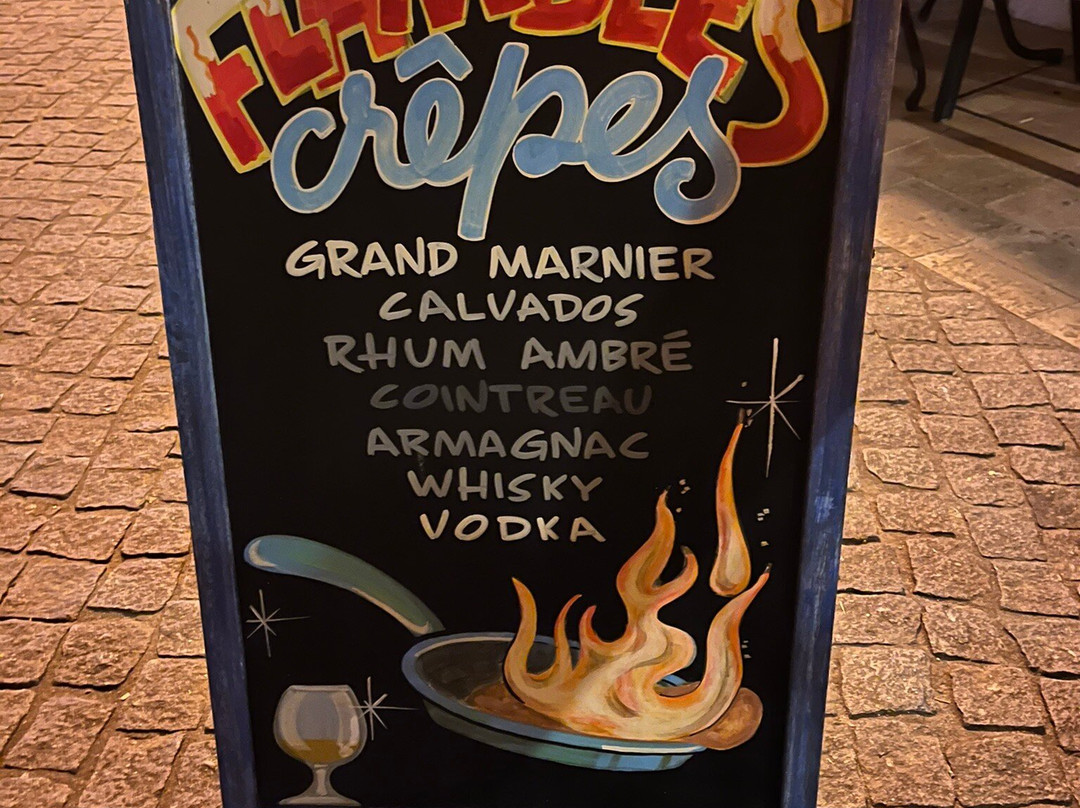 FLAMBÉES
crêpes
GRAND MARNIER
CALVADOS
RHUM AMBRÉ
COINTREAU
ARMAGNAC
WHISKY
VODKA